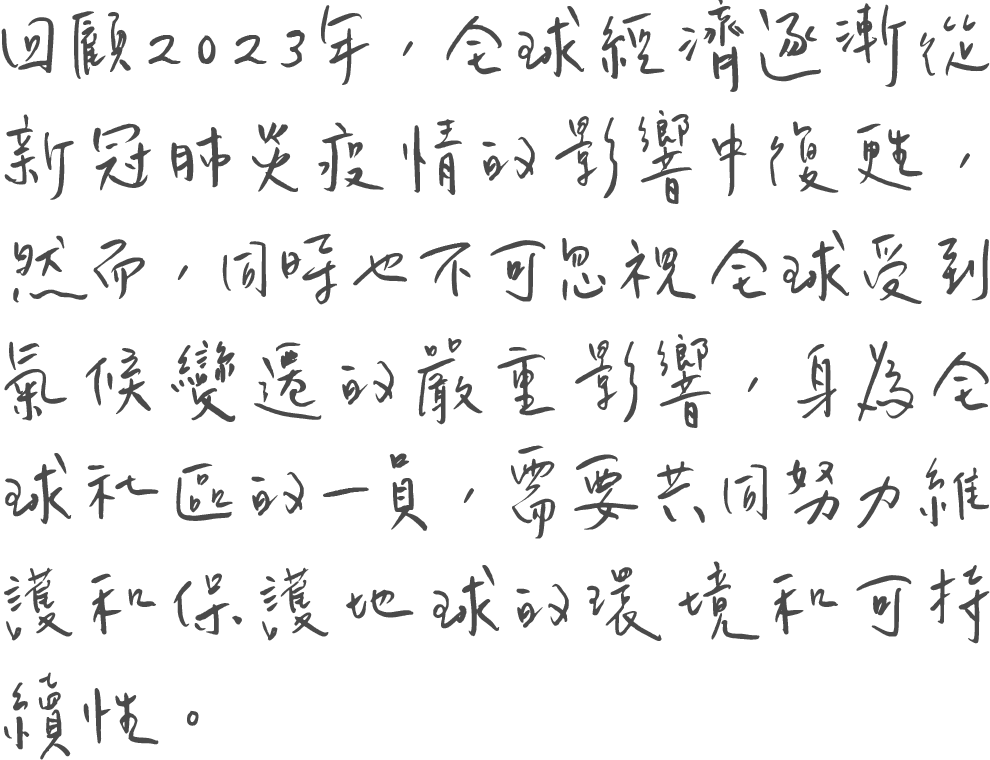 回顧2023年，全球經濟逐漸從
新冠肺炎疫情的影響中復甦，
然而，同時也不可忽視全球受到
氣候變遷的嚴重影響，身為全
球社區的一員，需要共同努力維
護和保護地球的環境和可持
續性。